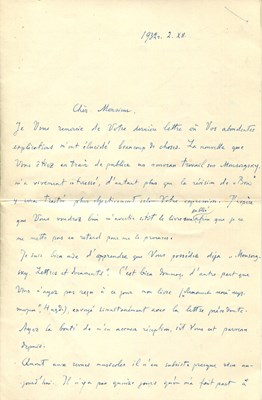 1932. 2. XII.
Cher Monsieur,
Je Vous remercie de Votre dernière lettre où Vos abondantes
explications m'ont élucidé beaucoup de choses. La nouvelle que
Vous êtes en train de publier un nouveau travail sur Moussorgsky,
m'a vivement intéressé, d'autant plus que la révision de
y sera traitée plus objectivement selon Votre expression. J'espère
que Vous voudrez bien m'avertir sitôt le livre publié afin que je
ne mette pas de retard pour me le procurer.
Je suis bien aise d'apprendre que Vous possédez déjà "Moussorg-
sky, Lettres et documents". C'est bien d'autre part que
Vous n'ayez pas reçu à ce jour mon livre
envoyé simultanément avec la lettre précédente.
Ayez la bonté de m'en accuser réception, s'il Vous est parvenu
depuis.
Quant aux revues musicales il n'en subsiste presque rien au-
jourd'hui. Il n'y a pas